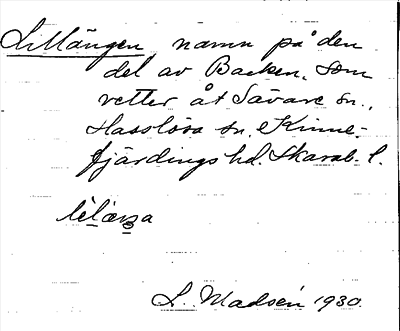 LMängen, namn på den
del av Backen, som
vetter åt Sävare sn.,
Hasslösa sn. Kinne-
fjärdings hd. Skarab. l.
L. Madsén 1930.